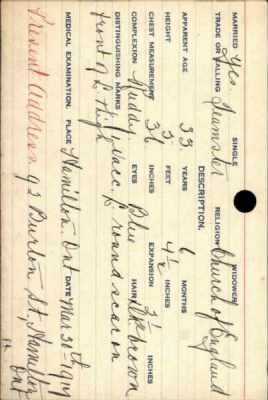 MARRIED Yes SINGLE WIDOWER
TRADE OR CALLING Teamster RELIGION Church of England
DESCRIPTION.
APPARENT AGE 33 YEARS 6 MONTHS
HEIGHT 5 FEET 4½ INCHES
CHEST MEASUREMENT 36 INCHES EXPANSION 3½ INCHES
COMPLEXION Ruddy EYES Blue HAIR Dk brown
DISTINGUISHING MARKS Vacc. round scar on
front of L. thigh
MEDICAL EXAMINATION. PLACE Hamilton. Ont DATE Mar 30th 1917
Present Address 93 Burton St, Hamilton
Ont